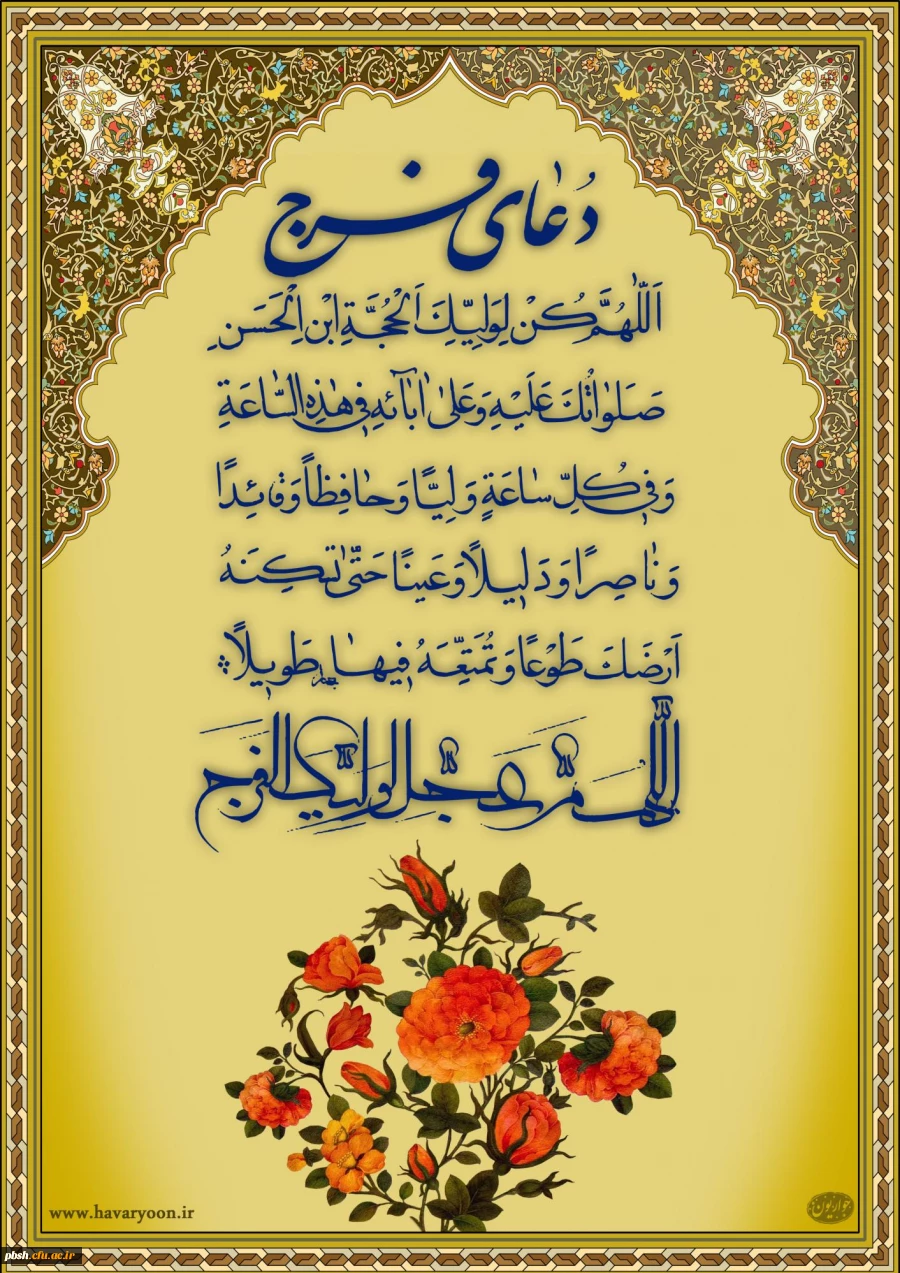 دُعٰای فرج
اَللّٰهُمَّ كُنْ لِوَلِيِّكَ اَلْحُجَّةِ ابْنِ الْحَسَنِ
صَلَوٰاتُكَ عَلَيْهِ وَعَلىٰ اٰبٰآئِهِ فِي هٰذِهِ السّٰاعَةِ
وَفِي كُلِّ سٰاعَةٍ وَلِيًّا وَحٰافِظاً وَقٰائِدًا
وَنٰاصِرًا وَدَلِيلاً وَعَينًا حَتّٰى تُسْكِنَهُ
اَرْضَكَ طَوْعًا وَتُمَتِّعَهُ فِيهٰا طَوِيلاً
اللّهمّ عجّل لوليّك الفرج
www.havaryoon.ir
حواریون
pbsh.cfu.ac.ir